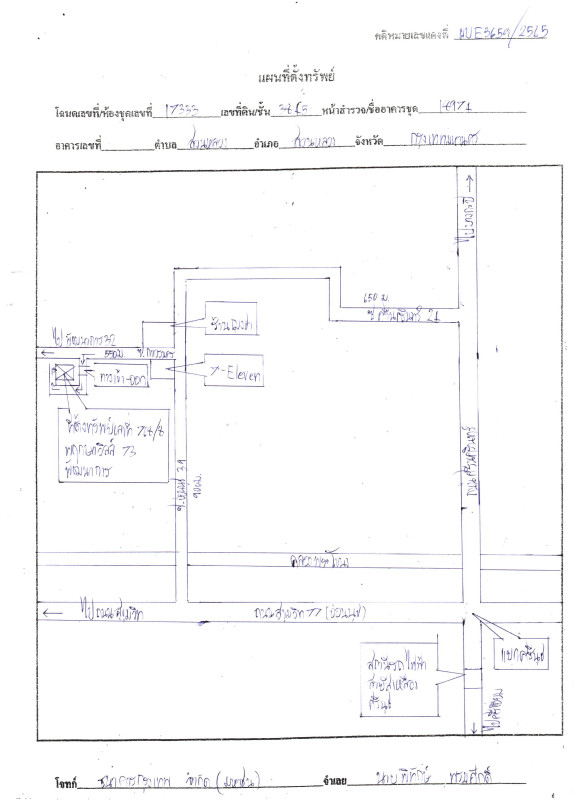 คดีหมายเลขแดงที่ ผบE3659/2565
แผนที่ตั้งทรัพย์
โฉนดเลขที่/ห้องชุดเลขที่ 17333 เลขที่ดิน/ชั้น หน้าสำรวจ/ชื่ออาคารชุด 14971
อาคารเลขที่ ตำบล สวนหลวง อำเภอ สวนหลวง จังหวัด กรุงเทพมหานคร
ไปบางกะปิ
150 ม.
ซ.ศรีนครินทร์ 21
ไปพัฒนาการ 32
550 ม.
7-Eleven
ทางเข้า-ออก
ที่ตั้งทรัพย์เลขที่ 768/8
พฤกษาวิลล์ 73
พัฒนาการ
ซ.อ่อนนุช 39
900ม.
ถนนศรีนครินทร์
คลองพระโขนง
ไปถนนสุขุมวิท
ถนนสุขุมวิท 77 (อ่อนนุช)
แยกศรีนุช
สถานีรถไฟฟ้า
สายสีเหลือง
ศรีนุช
โจทก์ ธนาคารกรุงเทพ จำกัด (มหาชน) จำเลย นายพิทักษ์ พรมศักดิ์